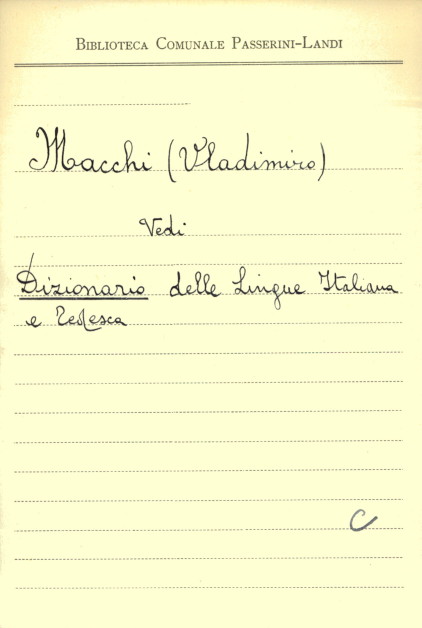 BIBLIOTECA COMUNALE PASSERINI-LANDI
Macchi (Vladimiro)
Vedi
Dizionario delle Lingue Italiana
e Tedesca
C